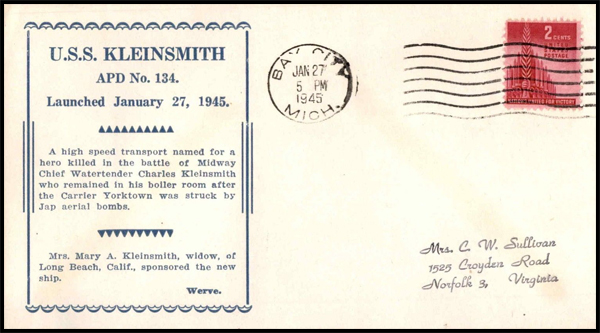 U.S.S. KLEINSMITH
APD No. 134.
Launched January 27, 1945.
A high speed transport named for a
hero killed in the battle of Midway
Chief Watertender Charles Kleinsmith
who remained in his boiler room after
the Carrier Yorktown was struck by
Jap aerial bombs.
Mrs. Mary A. Kleinsmith, widow, of
Long Beach, Calif., sponsored the new
ship.
Werve.
BAY CITY
JAN 27
5 PM
1945
MICH.
2 CENTS
POSTAGE
FOR VICTORY
Mrs. C. W. Sullivan
1525 Croyden Road
Norfolk 3, Virginia